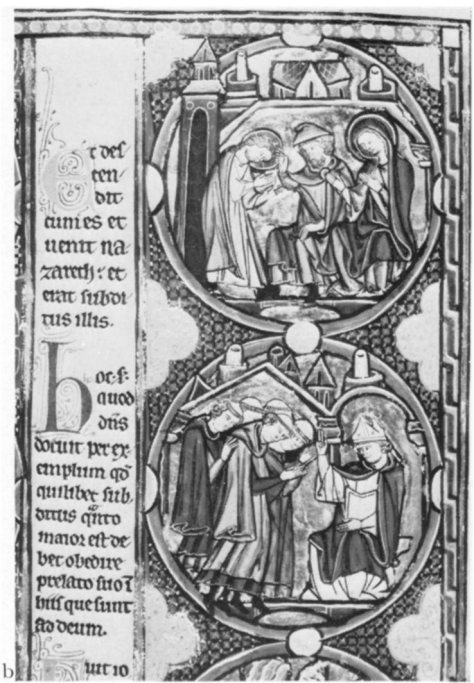 Et des
cen
dit
cum eis et
uenit na
zareth: et
erat subdi
tus illis.
hoc .s.
quod
dns
docuit per ex
emplum qd
quilibet sub
ditus qnto
maior est de
bet obedire
prelato suo ī
hiis que sunt
ad deum.
b